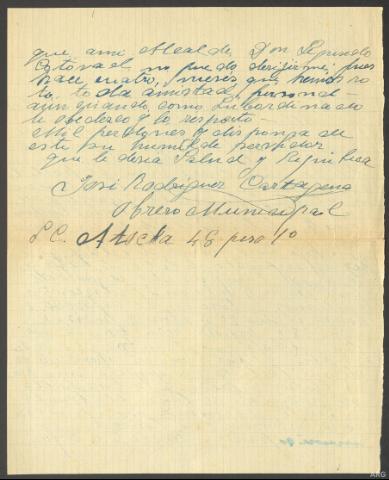 que ami Alcalde Don Segundo
no puedo dirigirme pues
hace cuatro, meses que hemos ro
to, toda amistad, personal-
aún quando como Subordinado
le obedezco y lo respeto-
Mil perdones y disponga de
este su humilde servidor
que le desea Salud y República
José Rodriguez Cartagena
Obrero Municipal
S.C. Atocha 48 piso 1º
ARG